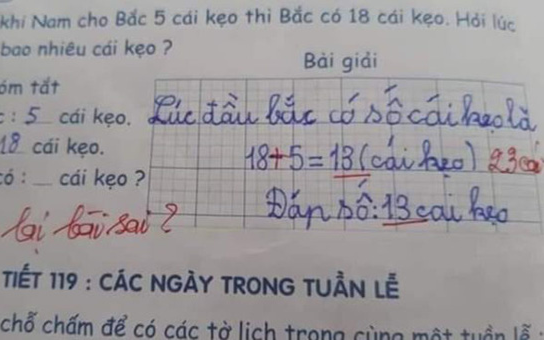 khi Nam cho Bắc 5 cái kẹo thì Bắc có 18 cái kẹo. Hỏi lúc
bao nhiêu cái kẹo ?
Bài giải
óm tắt
: 5 cái kẹo.
Lúc đầu bắc có số cái kẹo là
18 cái kẹo.
18+5=13(cái kẹo) 23cá
có : __ cái kẹo ?
Đáp số: 13 cái kẹo
lại bài sai ?
TIẾT 119 : CÁC NGÀY TRONG TUẦN LỄ
chỗ chấm để có các tờ lịch trong cùng một tuần lễ :